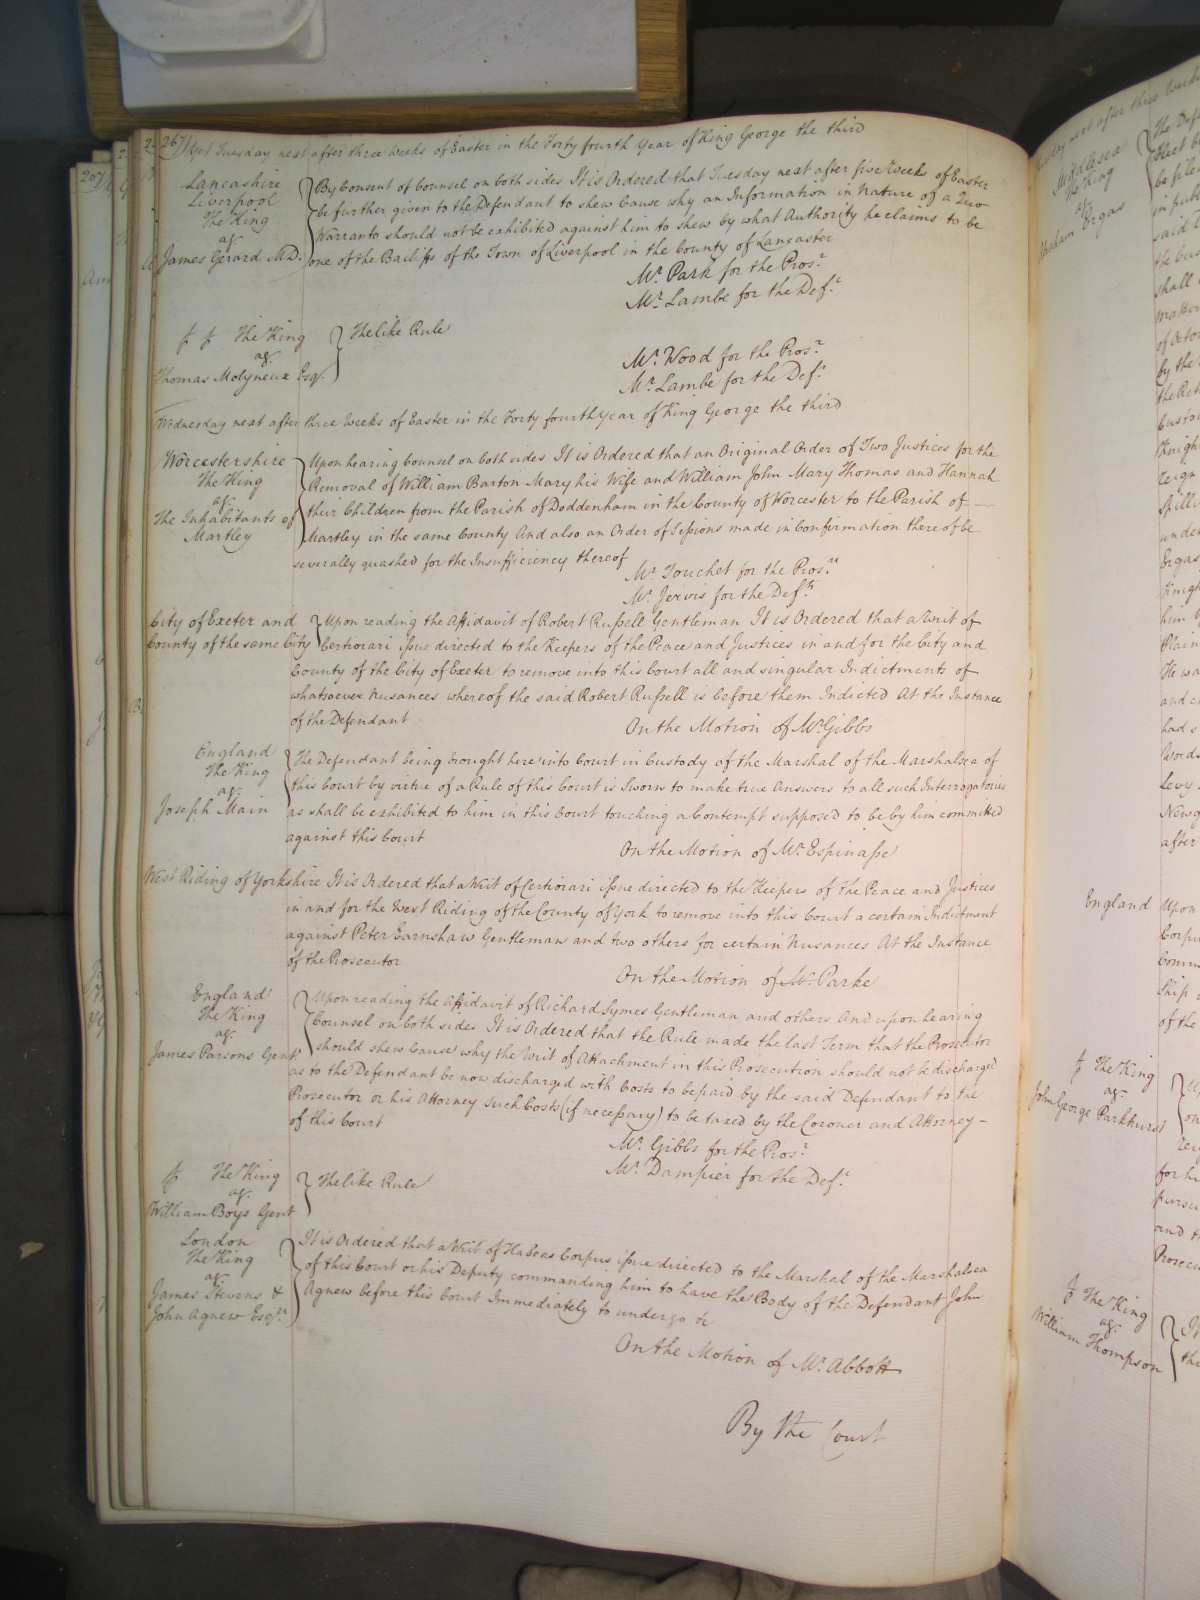 267) Yet Tuesday next after three Weeks of Easter in the Forty fourth Year of King George the third
Lancashire
Liverpool
The King
agt
James Gerard M.D.
By Consent of Counsel on both sides It is Ordered that Tuesday next after five Weeks of Easter
be further given to the Defendant to shew Cause why an Information in Nature of a Quo
Warranto should not be exhibited against him to shew by what Authority he claims to be
one of the Bailiffs of the Town of Liverpool in the County of Lancaster
Mr. Park for the Prosr.
Mr. Lambe for the Deft.
The King
agt
Thomas Molyneux Esqr.
The like Rule
Mr. Wood for the Prosr.
Mr. Lambe for the Deft.
Wednesday next after three Weeks of Easter in the Forty fourth Year of King George the third
Worcestershire
The King
agt
The Inhabitants of
Martley
Upon hearing Counsel on both sides It is Ordered that an Original Order of Two Justices for the
Removal of William Barton Mary his Wife and William John Mary Thomas and Hannah
their Children from the Parish of Doddenham in the County of Worcester to the Parish of
Martley in the same County And also an Order of Sessions made in Confirmation thereof be
severally quashed for the Insufficiency thereof
Mr. Touchet for the Prosrs.
Mr. Jervis for the Defts.
City of Exeter and
County of the same City
Upon reading the Affidavit of Robert Russell Gentleman It is Ordered that a Writ of
Certiorari issue directed to the Keepers of the Peace and Justices in and for the City and
County of the City of Exeter to remove into this Court all and singular Indictments of
whatsoever Nusances whereof the said Robert Russell is before them Indicted At the Instance
of the Defendant
On the Motion of Mr. Gibbs
England
The King
agt
Joseph Main
The Defendant being brought here into Court in Custody of the Marshal of the Marshalsea of
this Court by virtue of a Rule of this Court is Sworn to make true Answers to all such Interrogatories
as shall be exhibited to him in this Court touching a Contempt supposed to be by him committed
against this Court
On the Motion of Mr. Espinasse
West Riding of Yorkshire It is Ordered that a Writ of Certiorari issue directed to the Keepers of the Peace and Justices
in and for the West Riding of the County of York to remove into this Court a certain Indictment
against Peter Earnshaw Gentleman and two others for certain Nusances At the Instance
of the Prosecutor
On the Motion of Mr. Parke
England
The King
agt
James Parsons Gent.
Upon reading the Affidavit of Richard Symes Gentleman and others And upon hearing
Counsel on both sides It is Ordered that the Rule made the last Term that the Prosecutor
should shew Cause why the Writ of Attachment in this Prosecution should not be discharged
as to the Defendant be now discharged with Costs to be paid by the said Defendant to the
Prosecutor or his Attorney Such Costs (if necessary) to be taxed by the Coroner and Attorney
of this Court
Mr. Gibbs for the Prosr.
Mr. Dampier for the Deft.
The King
agt
William Boys Gent
The like Rule
London
The King
agt
James Stevens &
John Agnew Esqrs.
It is Ordered that a Writ of Habeas Corpus issue directed to the Marshal of the Marshalsea
of this Court or his Deputy commanding him to have the Body of the Defendant John
Agnew before this Court Immediately to undergo &c
On the Motion of Mr. Abbott
By the Court
207
Middlesex
The King
agt
Ergas
England
The King
agt
John George Parkhurst
The King
agt
William Thompson